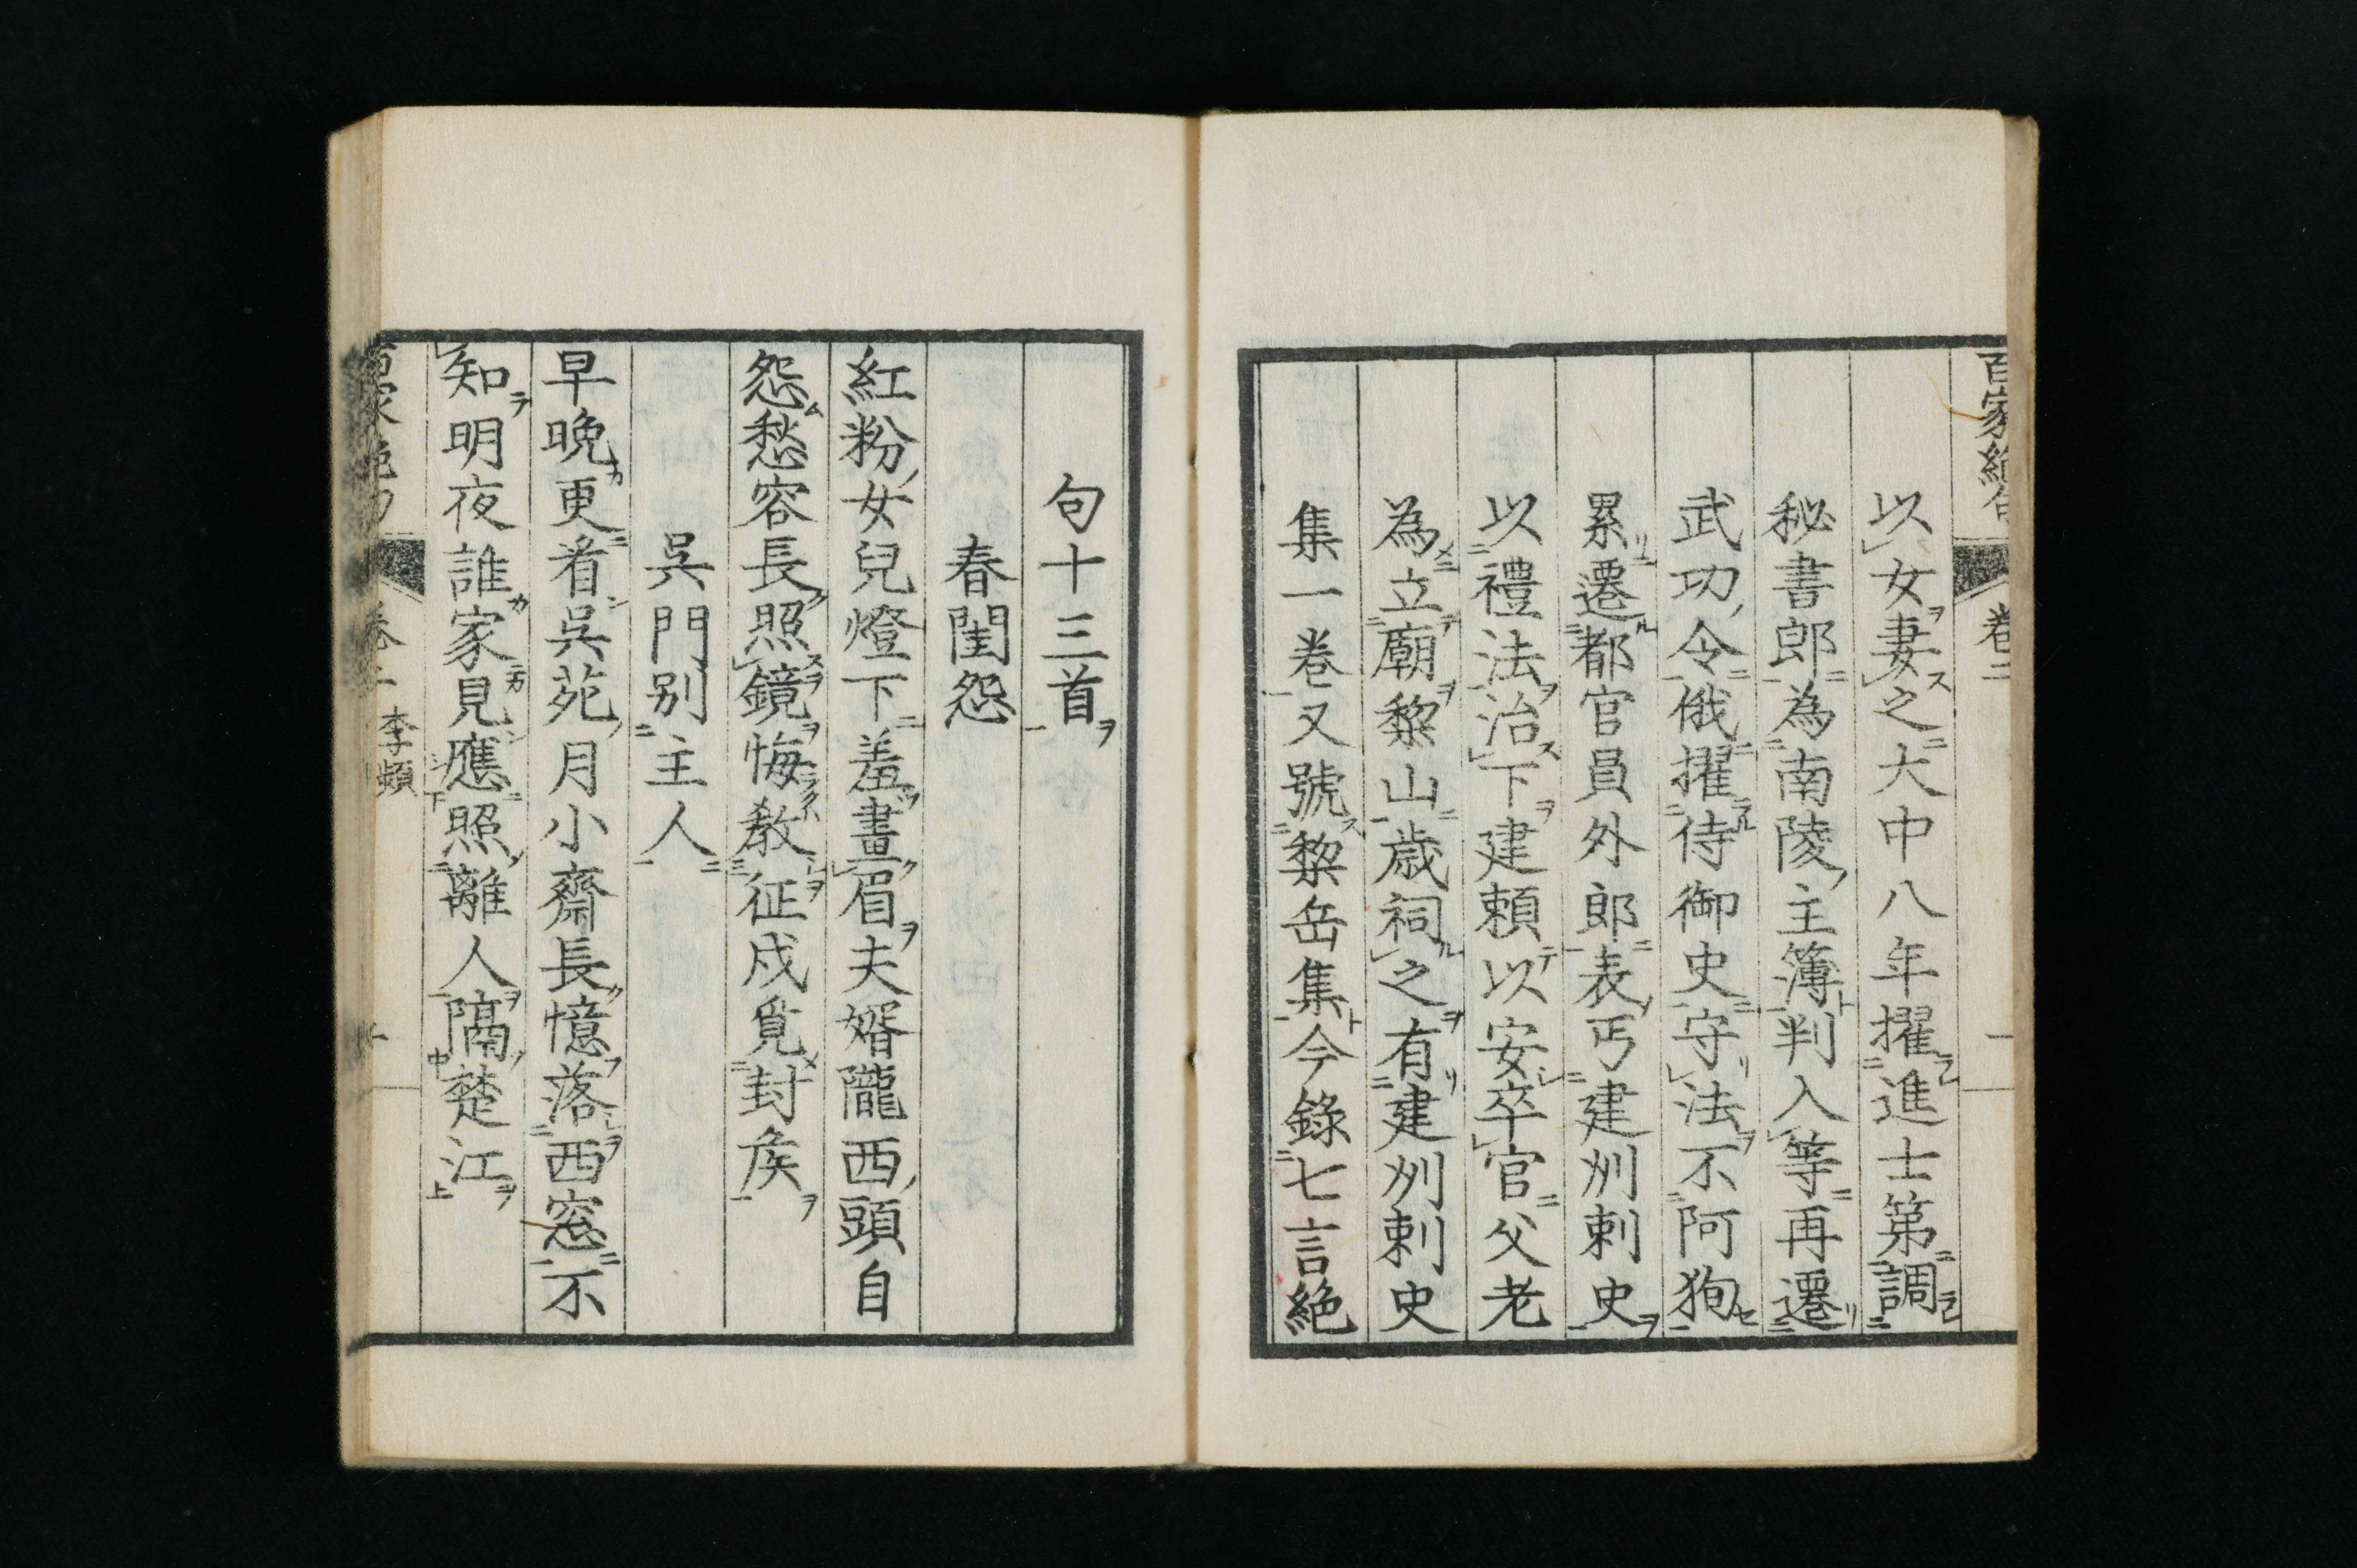 百家絶句 卷二
以女妻之大中八年擢進士第調
秘書郎為南陵主簿判入等再遷
武功令俄擢侍御史守法不阿狥
累遷都官員外郎表丐建州刺史
以禮法治下建頼以安卒官父老
為立廟黎山歲祠之有建州刺史
集一卷又號黎岳集今錄七言絶
句十三首
春閨怨
紅粉女兒燈下羞畫眉夫婿隴西頭自
怨愁容長照鏡悔教征戍覓封矦
吳門别主人
早晚更看吳苑月小齋長憶落西窓不
知明夜誰家見應照離人隔楚江
李頻